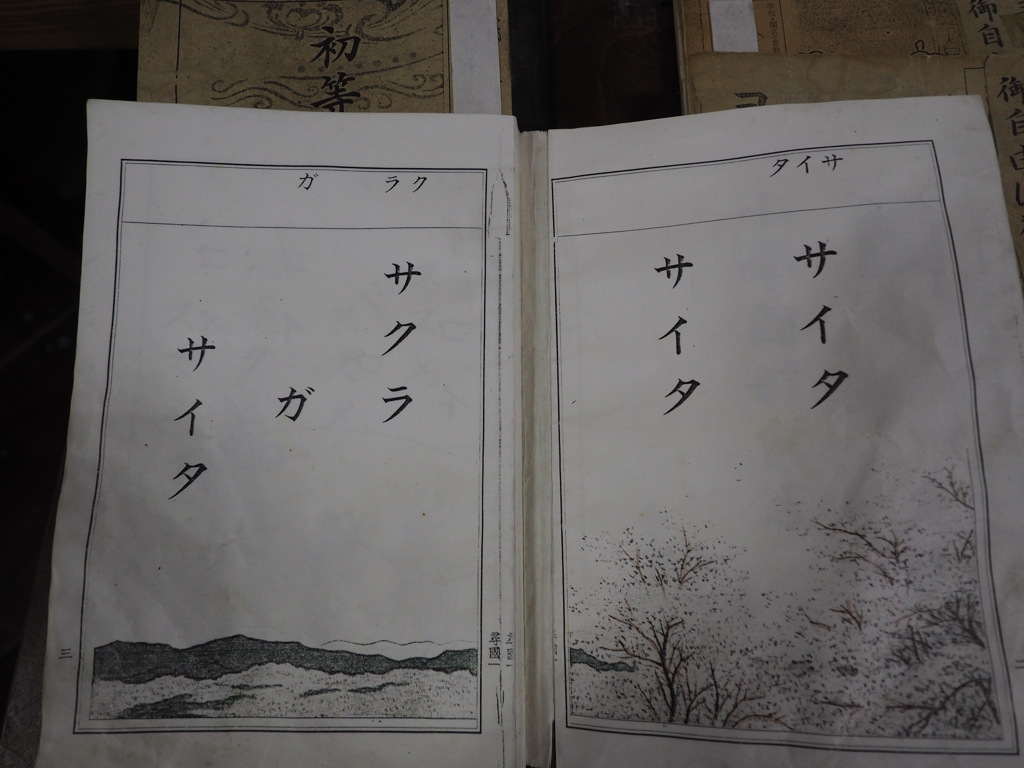 サイタ
サイタ
サイタ
クラ ガ
サクラ
ガ
サイタ
三
尋國一
初等
御自
御自由に